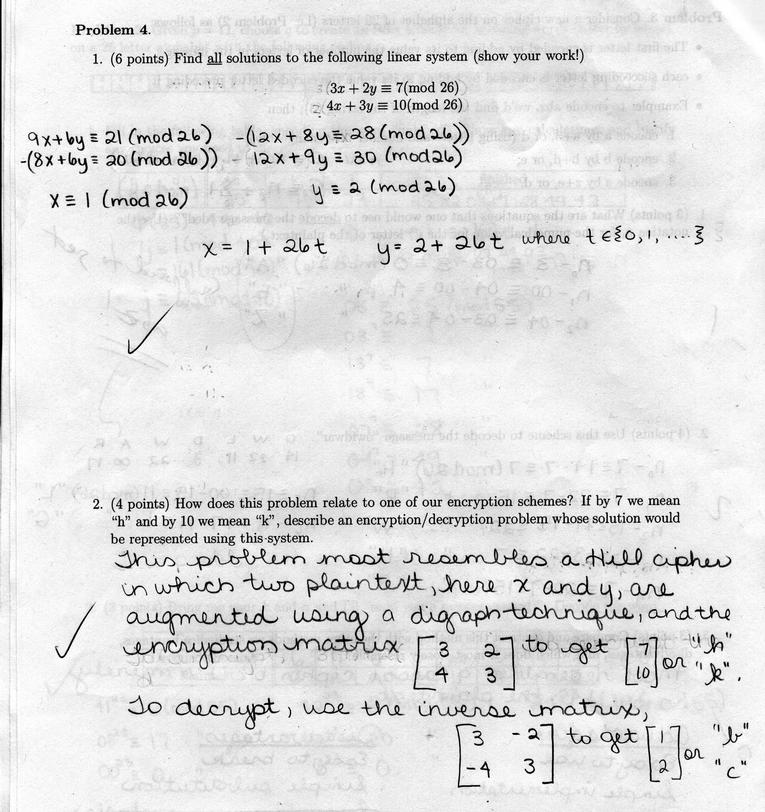 Problem 4.
1. (6 points) Find all solutions to the following linear system (show your work!)
3x + 2y ≡ 7(mod 26)
4x + 3y ≡ 10(mod 26)
9x+6y ≡ 21 (mod 26) -(12x + 8y ≡ 28 (mod 26))
-(8x+6y ≡ 20 (mod 26)) 12x + 9y ≡ 30 (mod 26)
x ≡ 1 (mod 26) y ≡ 2 (mod 26)
x = 1 + 26t y = 2 + 26t where t ∈ {0, 1, .... }
2. (4 points) How does this problem relate to one of our encryption schemes? If by 7 we mean
"h" and by 10 we mean "k", describe an encryption/decryption problem whose solution would
be represented using this system.
This problem most resembles a Hill cipher
in which two plaintext, here x and y, are
augmented using a digraph technique, and the
encryption matrix [3 2 to get [7 or "h"
4 3] 10] "k".
To decrypt, use the inverse matrix,
[3 -2 to get [1 or "b"
-4 3] 2] "c"